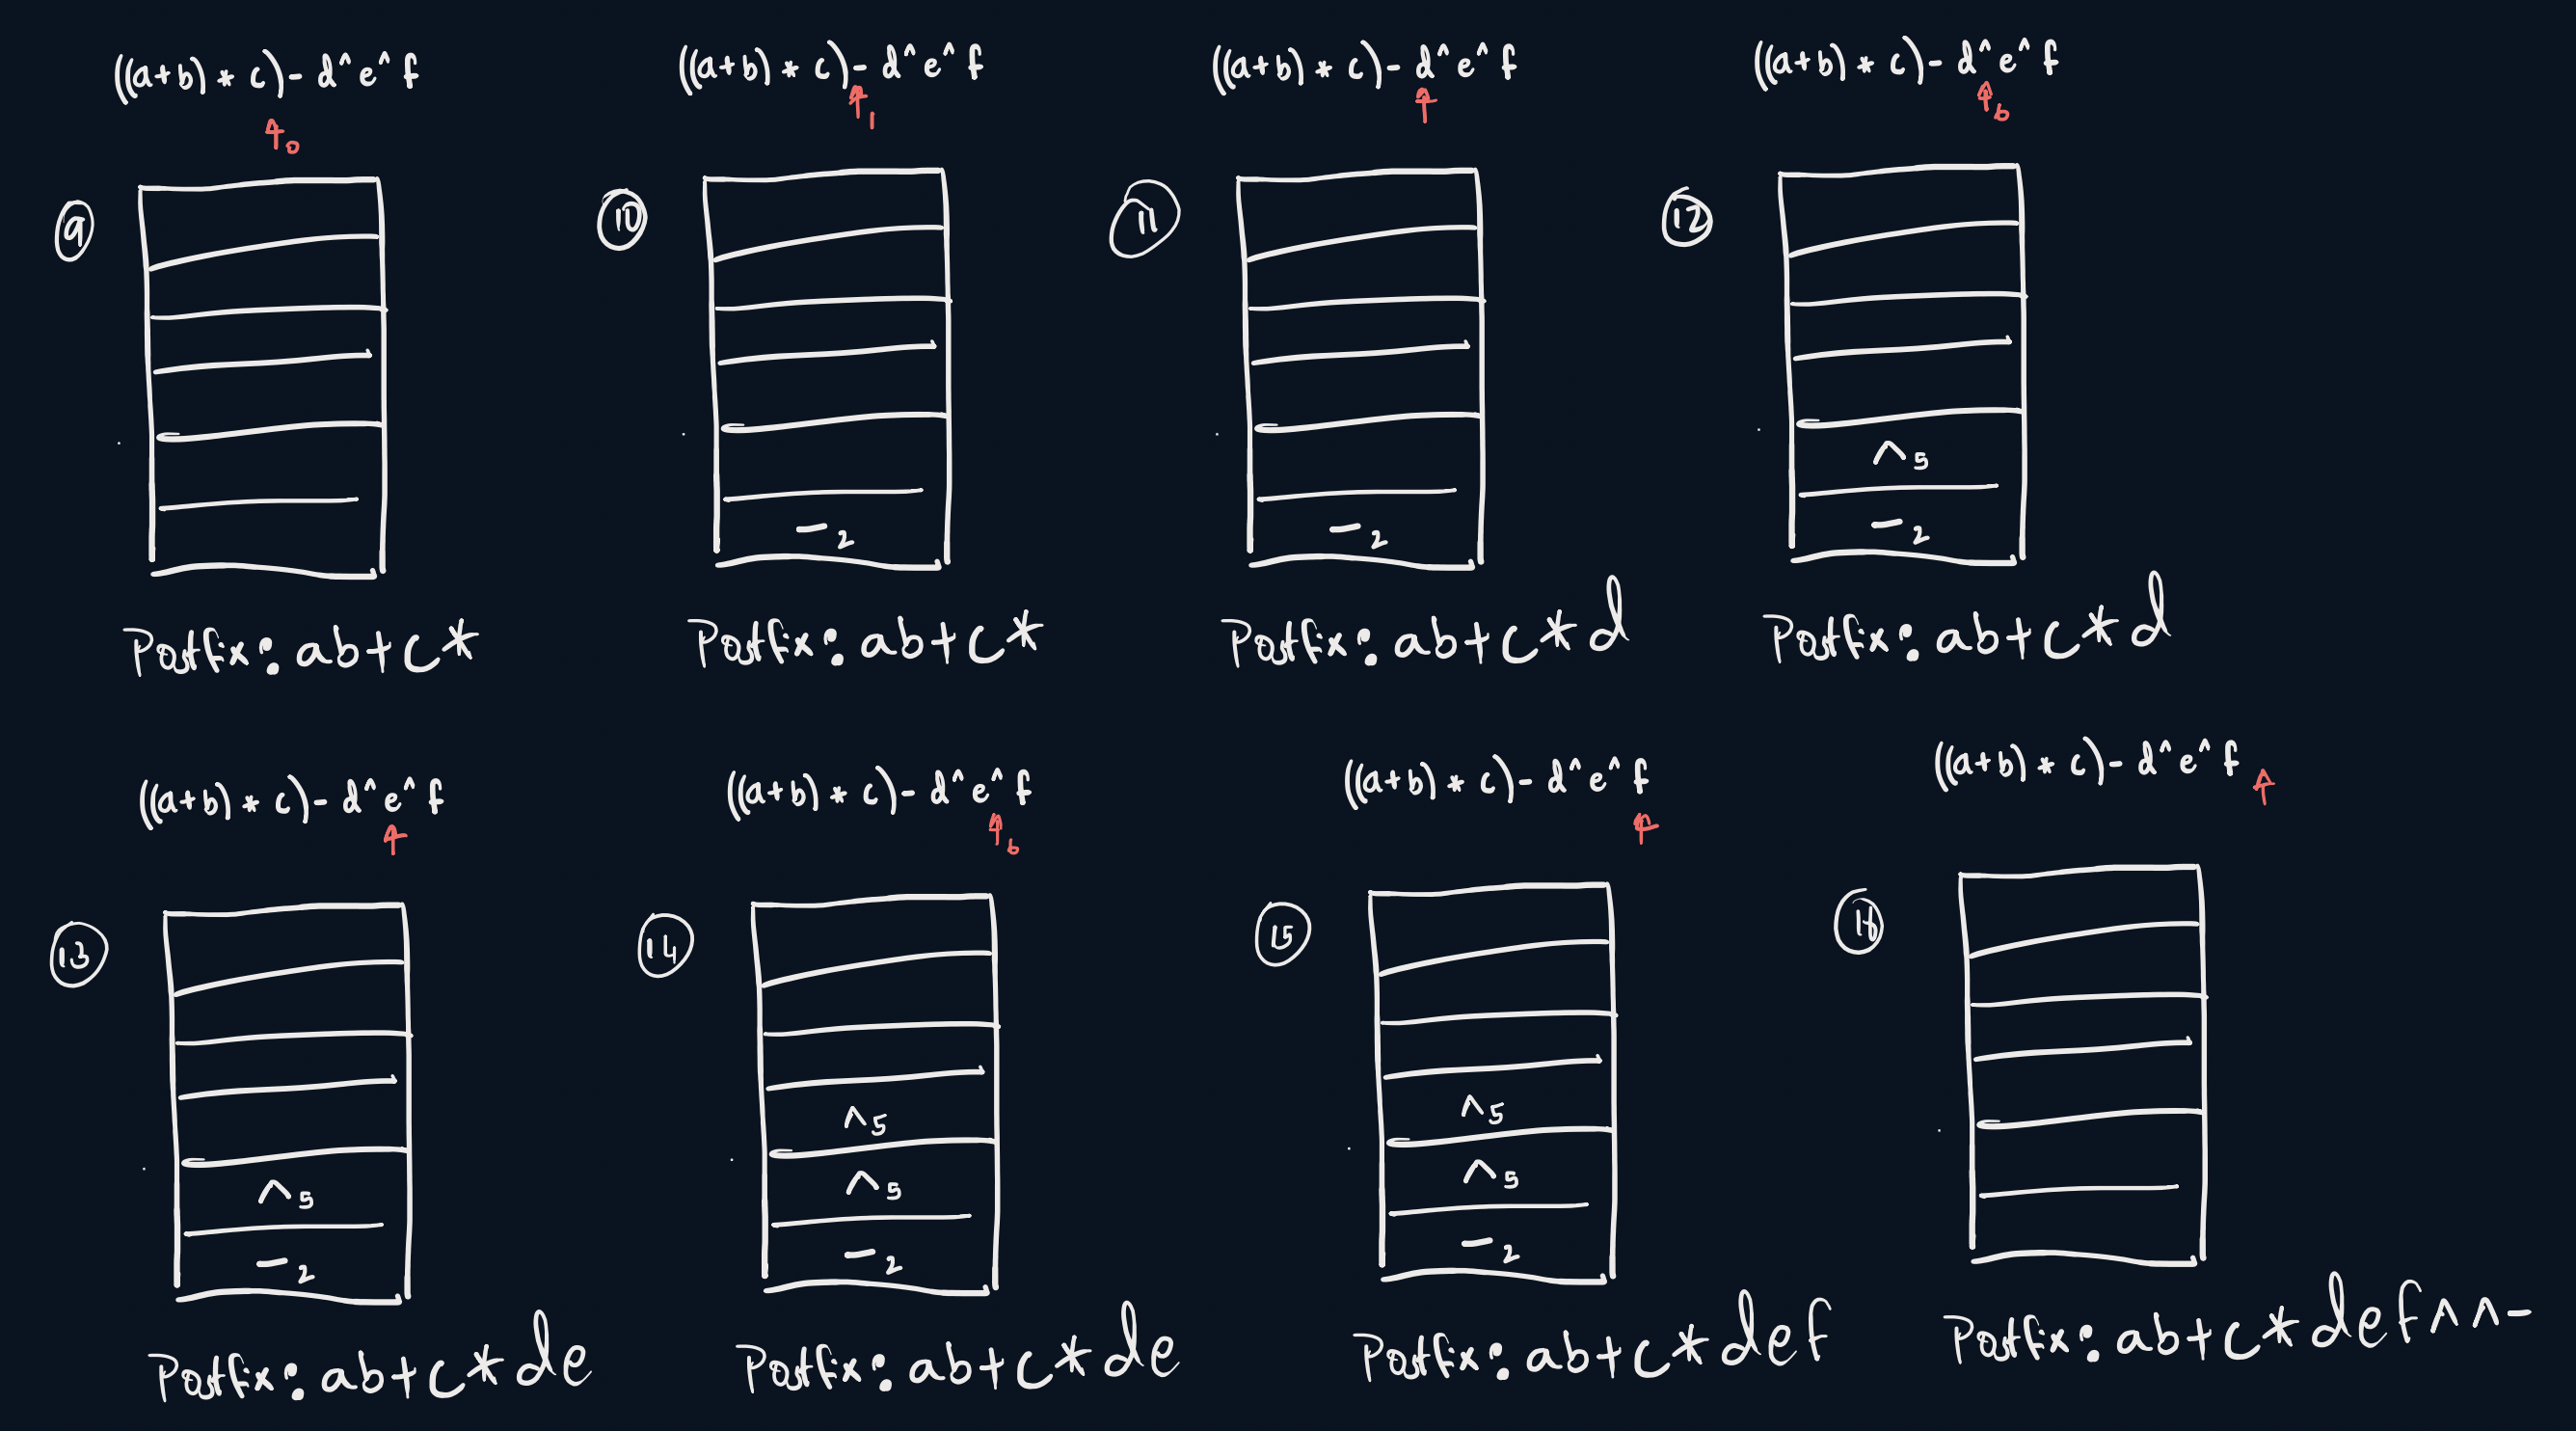 ((a+b) * c) - d^e^f
↑0
9
Postfix: ab+c*
((a+b) * c) - d^e^f
↑1
10
-2
Postfix: ab+c*
((a+b) * c) - d^e^f
↑
11
-2
Postfix: ab+c*d
((a+b) * c) - d^e^f
↑6
12
^5
-2
Postfix: ab+c*d
((a+b) * c) - d^e^f
↑
13
^5
-2
Postfix: ab+c*de
((a+b) * c) - d^e^f
↑6
14
^5
^5
-2
Postfix: ab+c*de
((a+b) * c) - d^e^f
↑
15
^5
^5
-2
Postfix: ab+c*def
((a+b) * c) - d^e^f
↑
16
Postfix: ab+c*def^^-